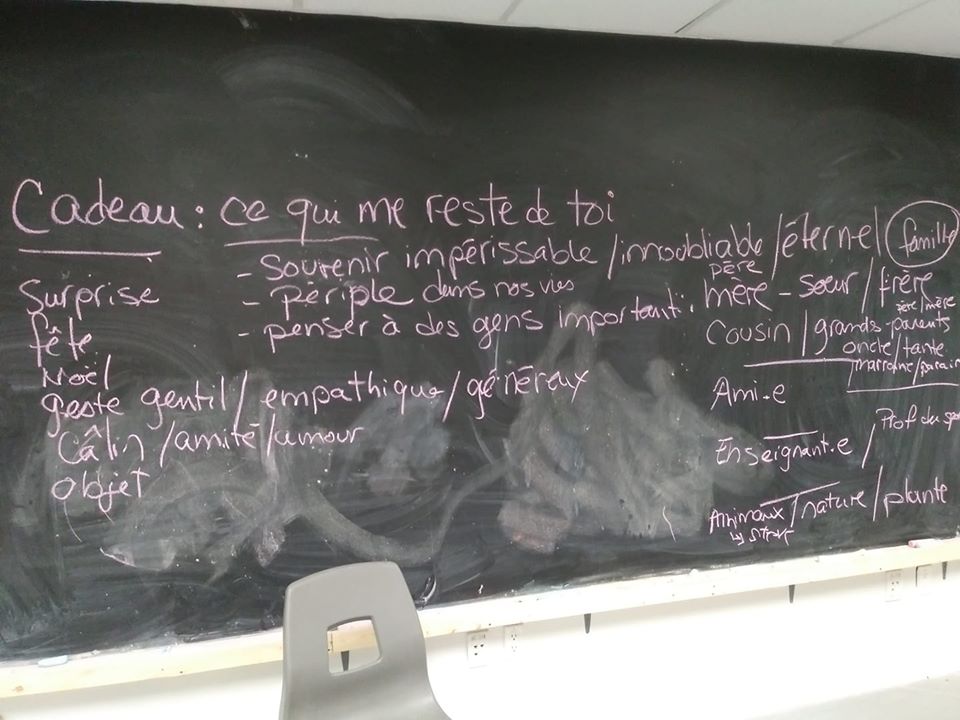 Cadeau : ce qui me reste de toi
- Souvenir impérissable / innoubliable / éternel
- périple dans nos vies
- penser à des gens important :
Surprise
fête
Noël
geste gentil / empathique / généreux
Câlin / amitié / amour
objet
famille
père
mère - soeur / frère
père / mère
Cousin / grands-parents
oncle / tante
marraine / parrain
Ami·e
Enseignant·e / Prof de
Animaux / nature / plante